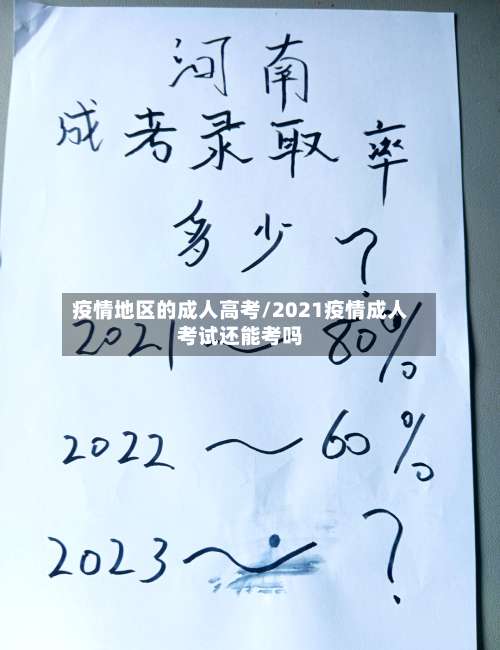 河南
成考录取率
多少?
疫情地区的成人高考/2021疫情成人
考试还能考吗
2021 ~ 80%
2022 ~ 60%
2023 ~ ?